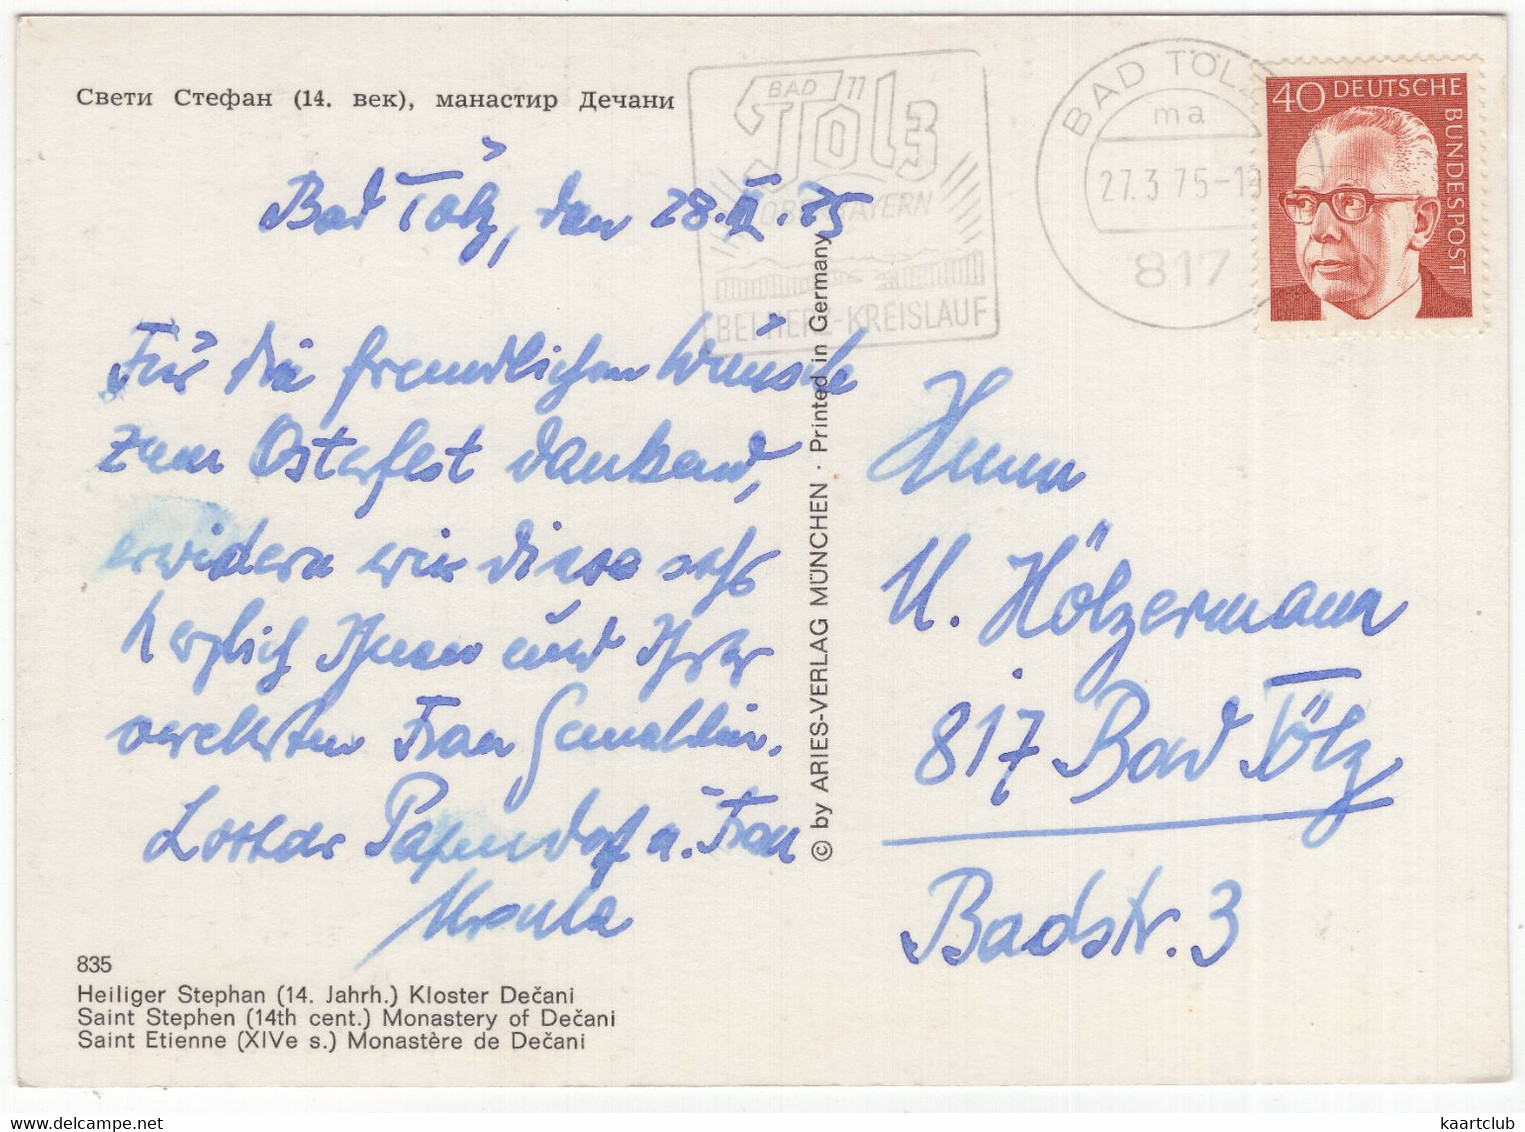 Свети Стефан (14. век), манастир Дечани
Bad Tölz, den 28.III.75
Für die freundlichen Wünsche
zum Osterfest dankend,
erwidern wir diese sehr
herzlich Ihnen und Ihrer
verehrten Frau Gemahlin.
Lothar Papendorf u. Frau
Ursula
835
Heiliger Stephan (14. Jahrh.) Kloster Dečani
Saint Stephen (14th cent.) Monastery of Dečani
Saint Etienne (XIVe s.) Monastère de Dečani
© by ARIES-VERLAG MÜNCHEN · Printed in Germany
BAD
Tölz
OBERBAYERN
BEI HERZ-KREISLAUF
BAD TÖLZ
ma
27.3.75-19
817
40 DEUTSCHE
BUNDESPOST
Herrn
U. Hölzermann
817 Bad Tölz
Badstr. 3
www.delcampe.net
kaartclub